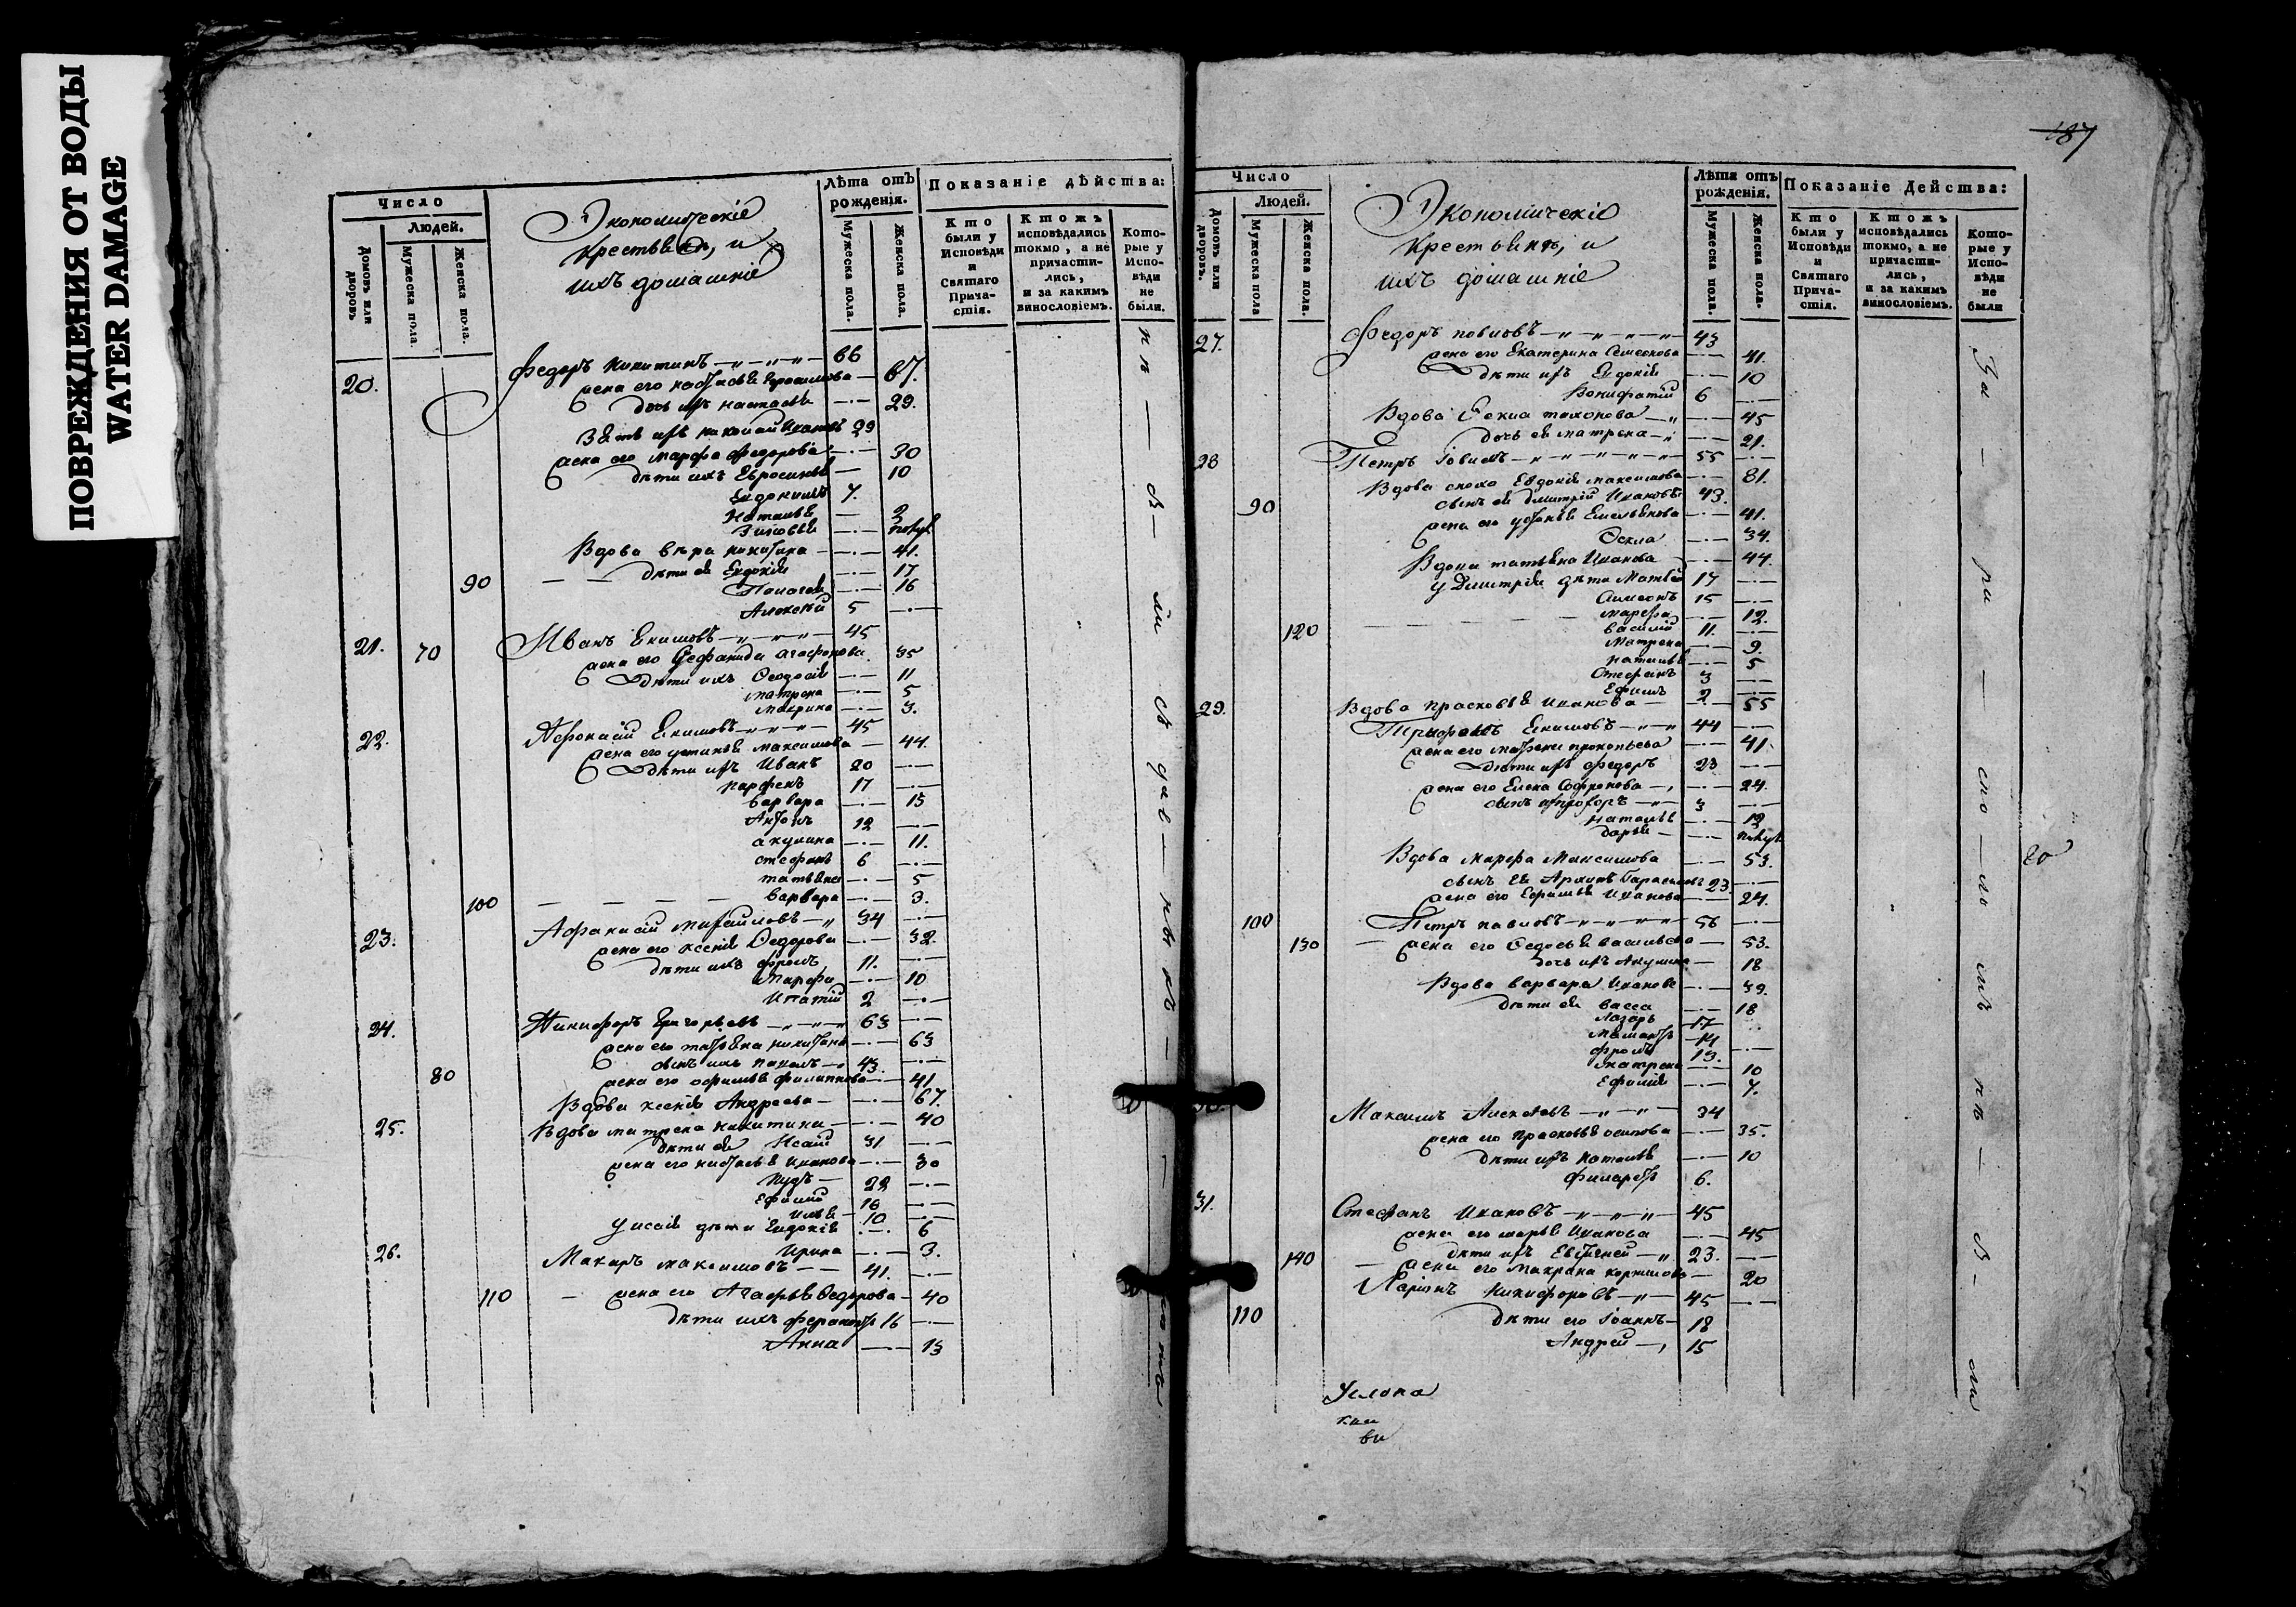 ПОВРЕЖДЕНИЯ ОТ ВОДЫ
WATER DAMAGE
Число
Людей.
Домовъ или дворовъ
Мужеска пола.
Женска пола.
Экономическіе
крестьяне, и
ихъ домашніе
Лѣта отъ рожденія.
Мужеска пола.
Женска пола.
Показаніе дѣйства:
Кто были у Исповѣди и Святаго Прича-стія.
Ктожъ исповѣдались токмо, а не причасти-лись, и за какимъ винословіемъ.
Кото-рые у Испо-вѣди не были.
20. Федоръ Никитинъ 66
жена его 67.
дочь ихъ Настасья 29.
Зять ихъ Николай Ивановъ 29
жена его Марфа Федорова 30
дѣти ихъ Евросинья 10
Евдокимъ 7.
Наталья 2
Зиновья
Вдова Вѣра Никитина 41.
90 дѣти ея Евдокія 17
Пелагея 16
Алексѣй 5
21. 70 Иванъ Екимовъ 45
жена его Стефанида Агафонова 35
дѣти ихъ Феодосія 11
Матрена 5
Макрина 3.
22. Афонасій Екимовъ 45
жена его Устинья Максимова 44.
дѣти ихъ Иванъ 20
Парфенъ 17
Варвара 15
Антонъ 12
Акулина 11.
Стефанъ 6
Татьяна 5
100 Варвара 3.
23. Афанасій Михайловъ 34
жена его Ксенія Федорова 32.
дѣти ихъ Фролъ 11.
Марфа 10
Ипатій 2
24. Никифоръ Григорьевъ 63
жена его Татьяна Никитина 63
сынъ ихъ Павелъ 43.
80 жена его Офимья Филиппова 41
Вдова Ксенія Андреева 67.
25. Вдова Матрена Никитина 40
дѣти ея Исай 31
жена его Настасья Иванова 30
22
Ефимъ 16
Илья 10
у Исаія дѣти Евдокія 6
Ирина 3.
26. Макаръ Максимовъ 41.
110 жена его Агафья Федорова 40
дѣти ихъ Ферапонтъ 16
Анна 13
187
Число
Людей.
Домовъ или дворовъ.
Мужеска пола
Женска пола.
Экономическіе
крестьяне, и
ихъ домашніе
Лѣта отъ рожденія.
Мужеска пола.
Женска пола.
Показаніе Действа:
Кто были у Исповѣди и Святаго Прича-стія.
Ктожъ исповѣдались токмо, а не причасти-лись, и за какимъ винословіемъ.
Кото-рые у Испо-вѣди не были
27. Федоръ Павловъ 43
жена его Екатерина Семенова 41.
дѣти ихъ Евдокія 10
Вонифатій 6
Вдова Фекла Тихонова 45
дочь ея Матрена 21.
28 Петръ 55
Вдова сноха Евдокія Максимова 81.
90 сынъ ея Дмитрій Ивановъ 43.
жена его Устинья Емельянова 41.
Фекла 34.
Вдова Татьяна Иванова 44.
у Дмитрія дѣти Матвѣй 17
Симеонъ 15
Марфа 12.
120 Василій 11.
Матрена 9.
Наталья 5
Стефанъ 3
Ефимъ 2
29. Вдова Прасковья Иванова 55
Трифонъ Екимовъ 44
жена его Матрена Прокопьева 41
дѣти ихъ Федоръ 23
жена его Елена Софронова 24.
сынъ ихъ Прохоръ 3
Наталья 12
Дарья
Вдова Марфа Максимова 53.
20
сынъ ея Архипъ Гарасимовъ 23.
жена его Ефимья Иванова 24.
100 Петръ Павловъ 56
130 жена его Федосья Васильева 53.
дочь ихъ Акулина 18
Вдова Варвара Иванова 39.
дѣти ея Васса 18
Лазарь 17
14
Фролъ 13.
Матрена 10
Ефимія 7.
30. Максимъ Алексѣевъ 34
жена его Прасковья Осипова 35.
дѣти ихъ Наталья 10
Филаретъ 6.
31. Стефанъ Ивановъ 45
жена его Марья Иванова 45
дѣти ихъ Евстигней 23.
140 жена его Макрина 20
Ларіонъ Никифоровъ 45
110 дѣти его Іоаннъ 18
Андрей 15